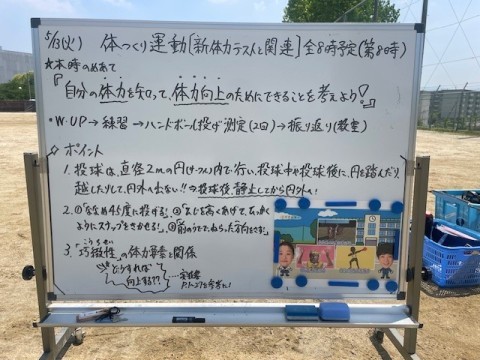 5/13(火) 体つくり運動〔新体力テストと関連〕全8時予定(第8時)
★本時のめあて
『自分の体力を知って、体力向上のためにできることを考えよう!』
• W-UP→練習→ハンドボール投げ測定(2回)→振り返り(教室)
☆ポイント
1. 投球は、直径2mの円(サークル)内で行い、投球中や投球後に、円を踏んだり、
越したりして、円外へ出ない!!⇒投球後、静止してから円外へ!
2. ①「ななめ45度に投げる!」②「ひじを高くあげて、
ようにスナップをきかせる!」③「前のうでで、ねらった方向をさす!」
3. 「巧緻性」の体力要素と関係
こうちせい
どうすれば
向上する??